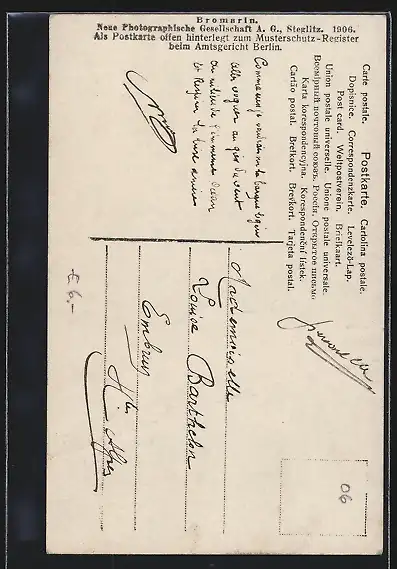 Bromarin.
Neue Photographische Gesellschaft A. G., Steglitz. 1906.
Als Postkarte offen hinterlegt zum Musterschutz-Register
beim Amtsgericht Berlin.
Carte postale. Postkarte. Cartolina postale.
Dopisnice. Correspondenzkarte. Levelező-Lap.
Post card. Weltpostverein. Briefkaart.
Union postale universelle. Unione postale universale.
Всемірный почтовый союзъ. Россія. Открытое письмо
Karta korespondencyjna. Korespondenční listek.
Cartão postal. Brefkort. Brevkort. Tarjeta postal.
Comme
voguer au gré du vent
Océan
Mademoiselle
Louise Barthelon
Embrun
Htes Alpes
E 6.-
06